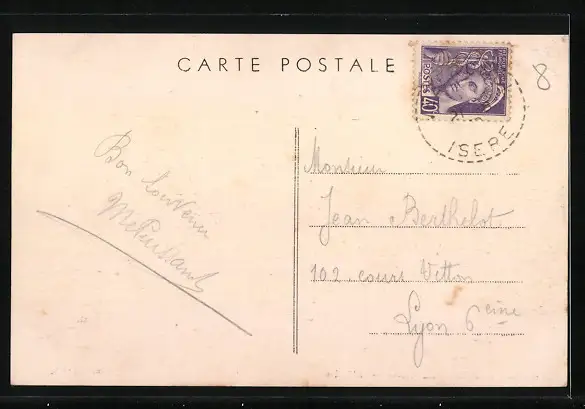 CARTE POSTALE
8
POSTES
40
ISERE
Bon Souvenir
Monsieur
Jean Berthelot
102 cours Vitton
Lyon 6 eme